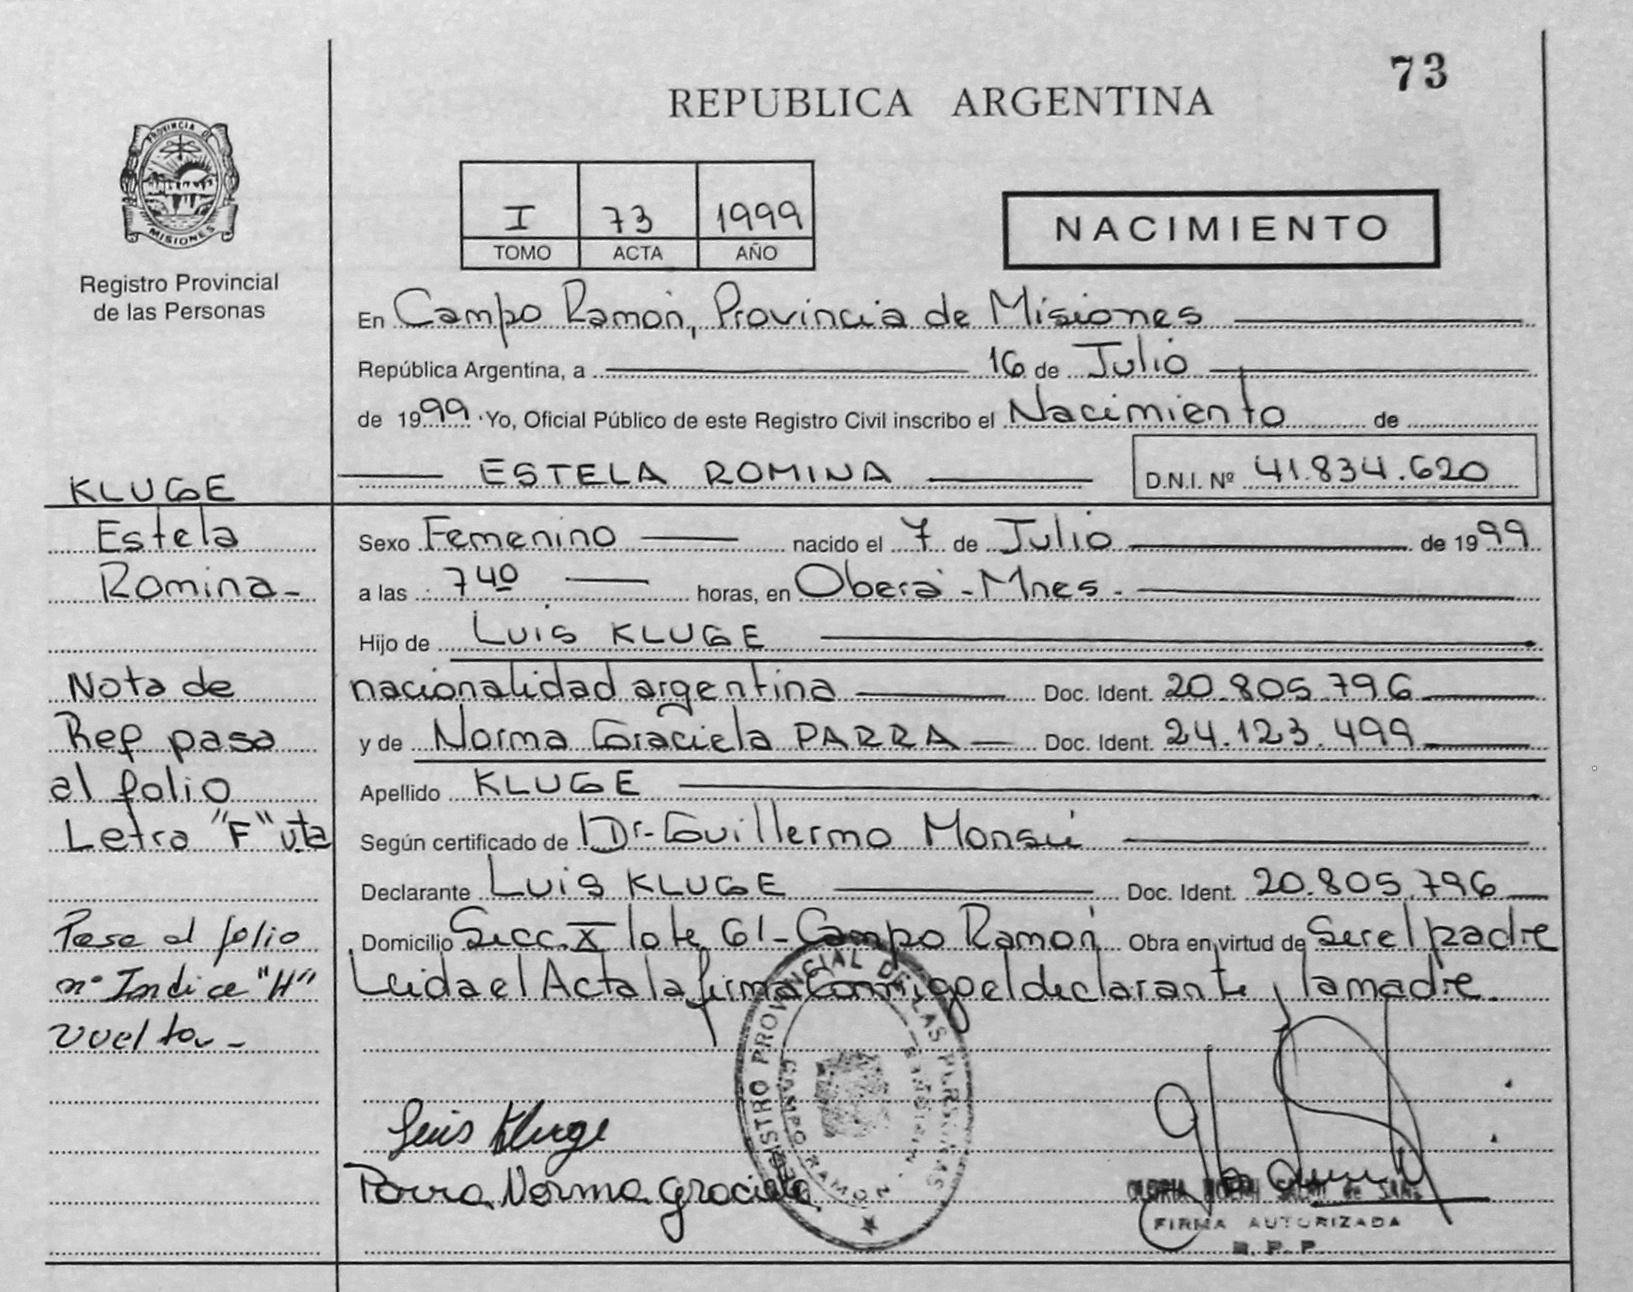 73
REPUBLICA ARGENTINA
PROVINCIA DE
MISIONES
Registro Provincial
de las Personas
I 73 1999
TOMO ACTA AÑO
NACIMIENTO
En Campo Ramón, Provincia de Misiones
República Argentina, a 16 de Julio
de 1999 Yo, Oficial Público de este Registro Civil inscribo el Nacimiento de
ESTELA ROMINA D.N.I. Nº 41.834.620
KLUGE
Estela
Romina-
Nota de
Ref pasa
al folio
Letra "F" vta
Pasa al folio
nº Indice "H"
vuelta-
Sexo Femenino nacido el 7 de Julio de 1999
a las 7 40 horas, en Oberá - Mnes -
Hijo de Luis KLUGE
nacionalidad argentina Doc. Ident. 20.805.796
y de Norma Graciela PARRA Doc. Ident. 24.123.499
Apellido KLUGE
Según certificado de Dr. Guillermo Monsú
Declarante Luis KLUGE Doc. Ident. 20.805.796
Domicilio Secc. X lote 61 - Campo Ramón Obra en virtud de Ser el padre
Leida el Acta la firma Conmigo el declarante y la madre.
REGISTRO PROVINCIAL DE LAS PERSONAS
CAMPO RAMON - MISIONES
Luis Kluge
Parra Norma Graciela
FIRMA AUTORIZADA
R. P. P.